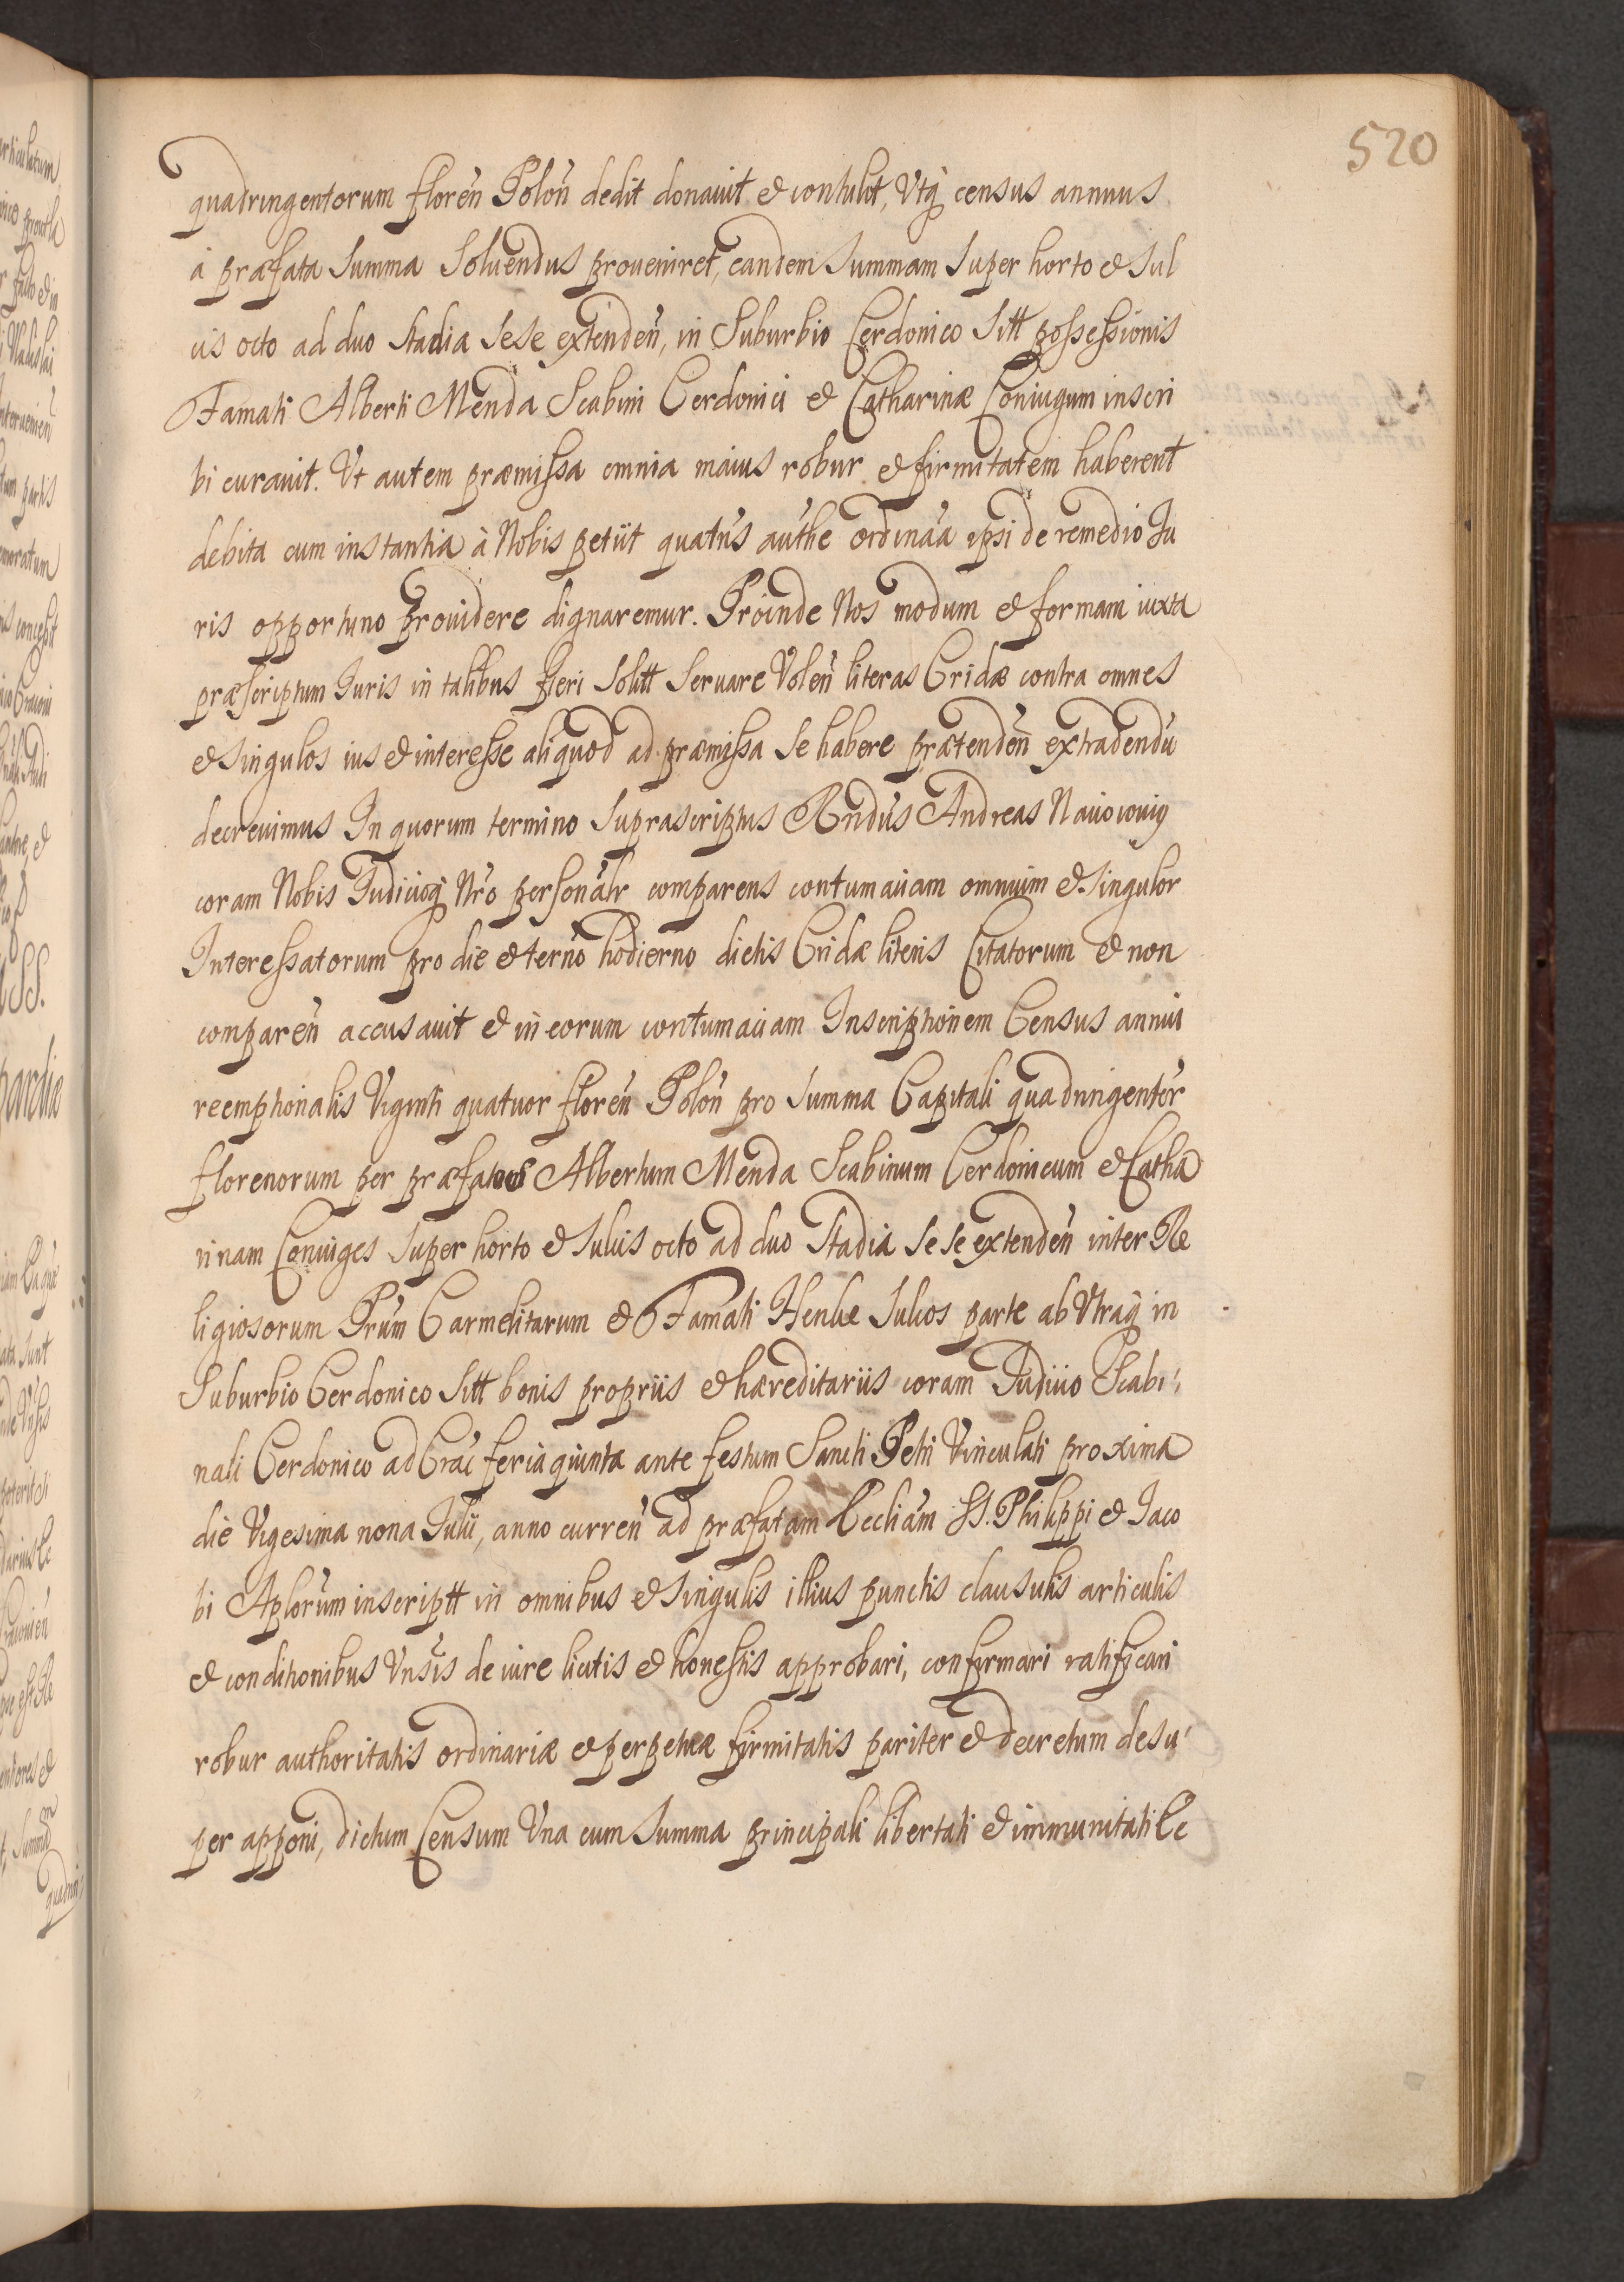 520
quadringentorum floreń Poloń dedit donauit et contulit, Vtq́ census annuus
à præfata Summa Soluendus proueniret, eandem Summam Super horto et Sul
cis octo ad duo Stadia Sese extendeń, in Suburbio Cerdonico Sitt possessionis
Famati Alberti Menda Scabini Cerdonici et Catharinæ Coniugum inscri
bi curauit. Vt autem præmissa omnia maius robur et firmitatem haberent
debita cum instantia à Nobis petiit quatńs authe ordinaa ipsi de remedio Iu
ris opportuno prouidere dignaremur. Proinde Nos modum et formam iuxta
præscriptum Iuris in talibus fieri Solitt Seruare Voleń literas Cridæ contra omnes
et Singulos ius et interesse aliquod ad præmissa Se habere prætendeń extradendu
decreuimus In quorum termino Suprascriptus Rndus Andreas
coram Nobis Iudicioq́ Nro personalr comparens contumaciam omnium et Singulor
Interessatorum pro die et terno hodierno dictis Cridæ literis Citatorum et non
compareń accusauit et in eorum contumaciam Inscriptionem Census annui
reemptionalis Viginti quatuor floreń Poloń pro Summa Capitali quadringentor
florenorum per præfatos Albertum Menda Scabinum Cerdonicum et Catha
rinam Coniuges Super horto et Sulcis octo ad duo Stadia Se se extendeń inter Re
ligiosorum Prum Carmelitarum et Famati Sulcos parte ab Vtraq́ in
Suburbio Cerdonico Sitt bonis propriis et hæreditariis coram Iudicio Scabi
nali Cerdonico ad Crac feria quinta ante festum Sancti Petri Vinculati proxima
die Vigesima nona Iulii, anno curreń ad præfatam Eccliam SS. Philippi et Iaco
bi Aplorum inscriptt in omnibus et Singulis illius punctis clausulis articulis
et conditionibus Vnsis de iure licitis et honestis approbari, confirmari ratificari
robur authoritatis ordinariæ et perpetuæ firmitatis pariter et decretum desu
per apponi, dictum Censum Vna cum Summa principali libertati et immunitati Ec